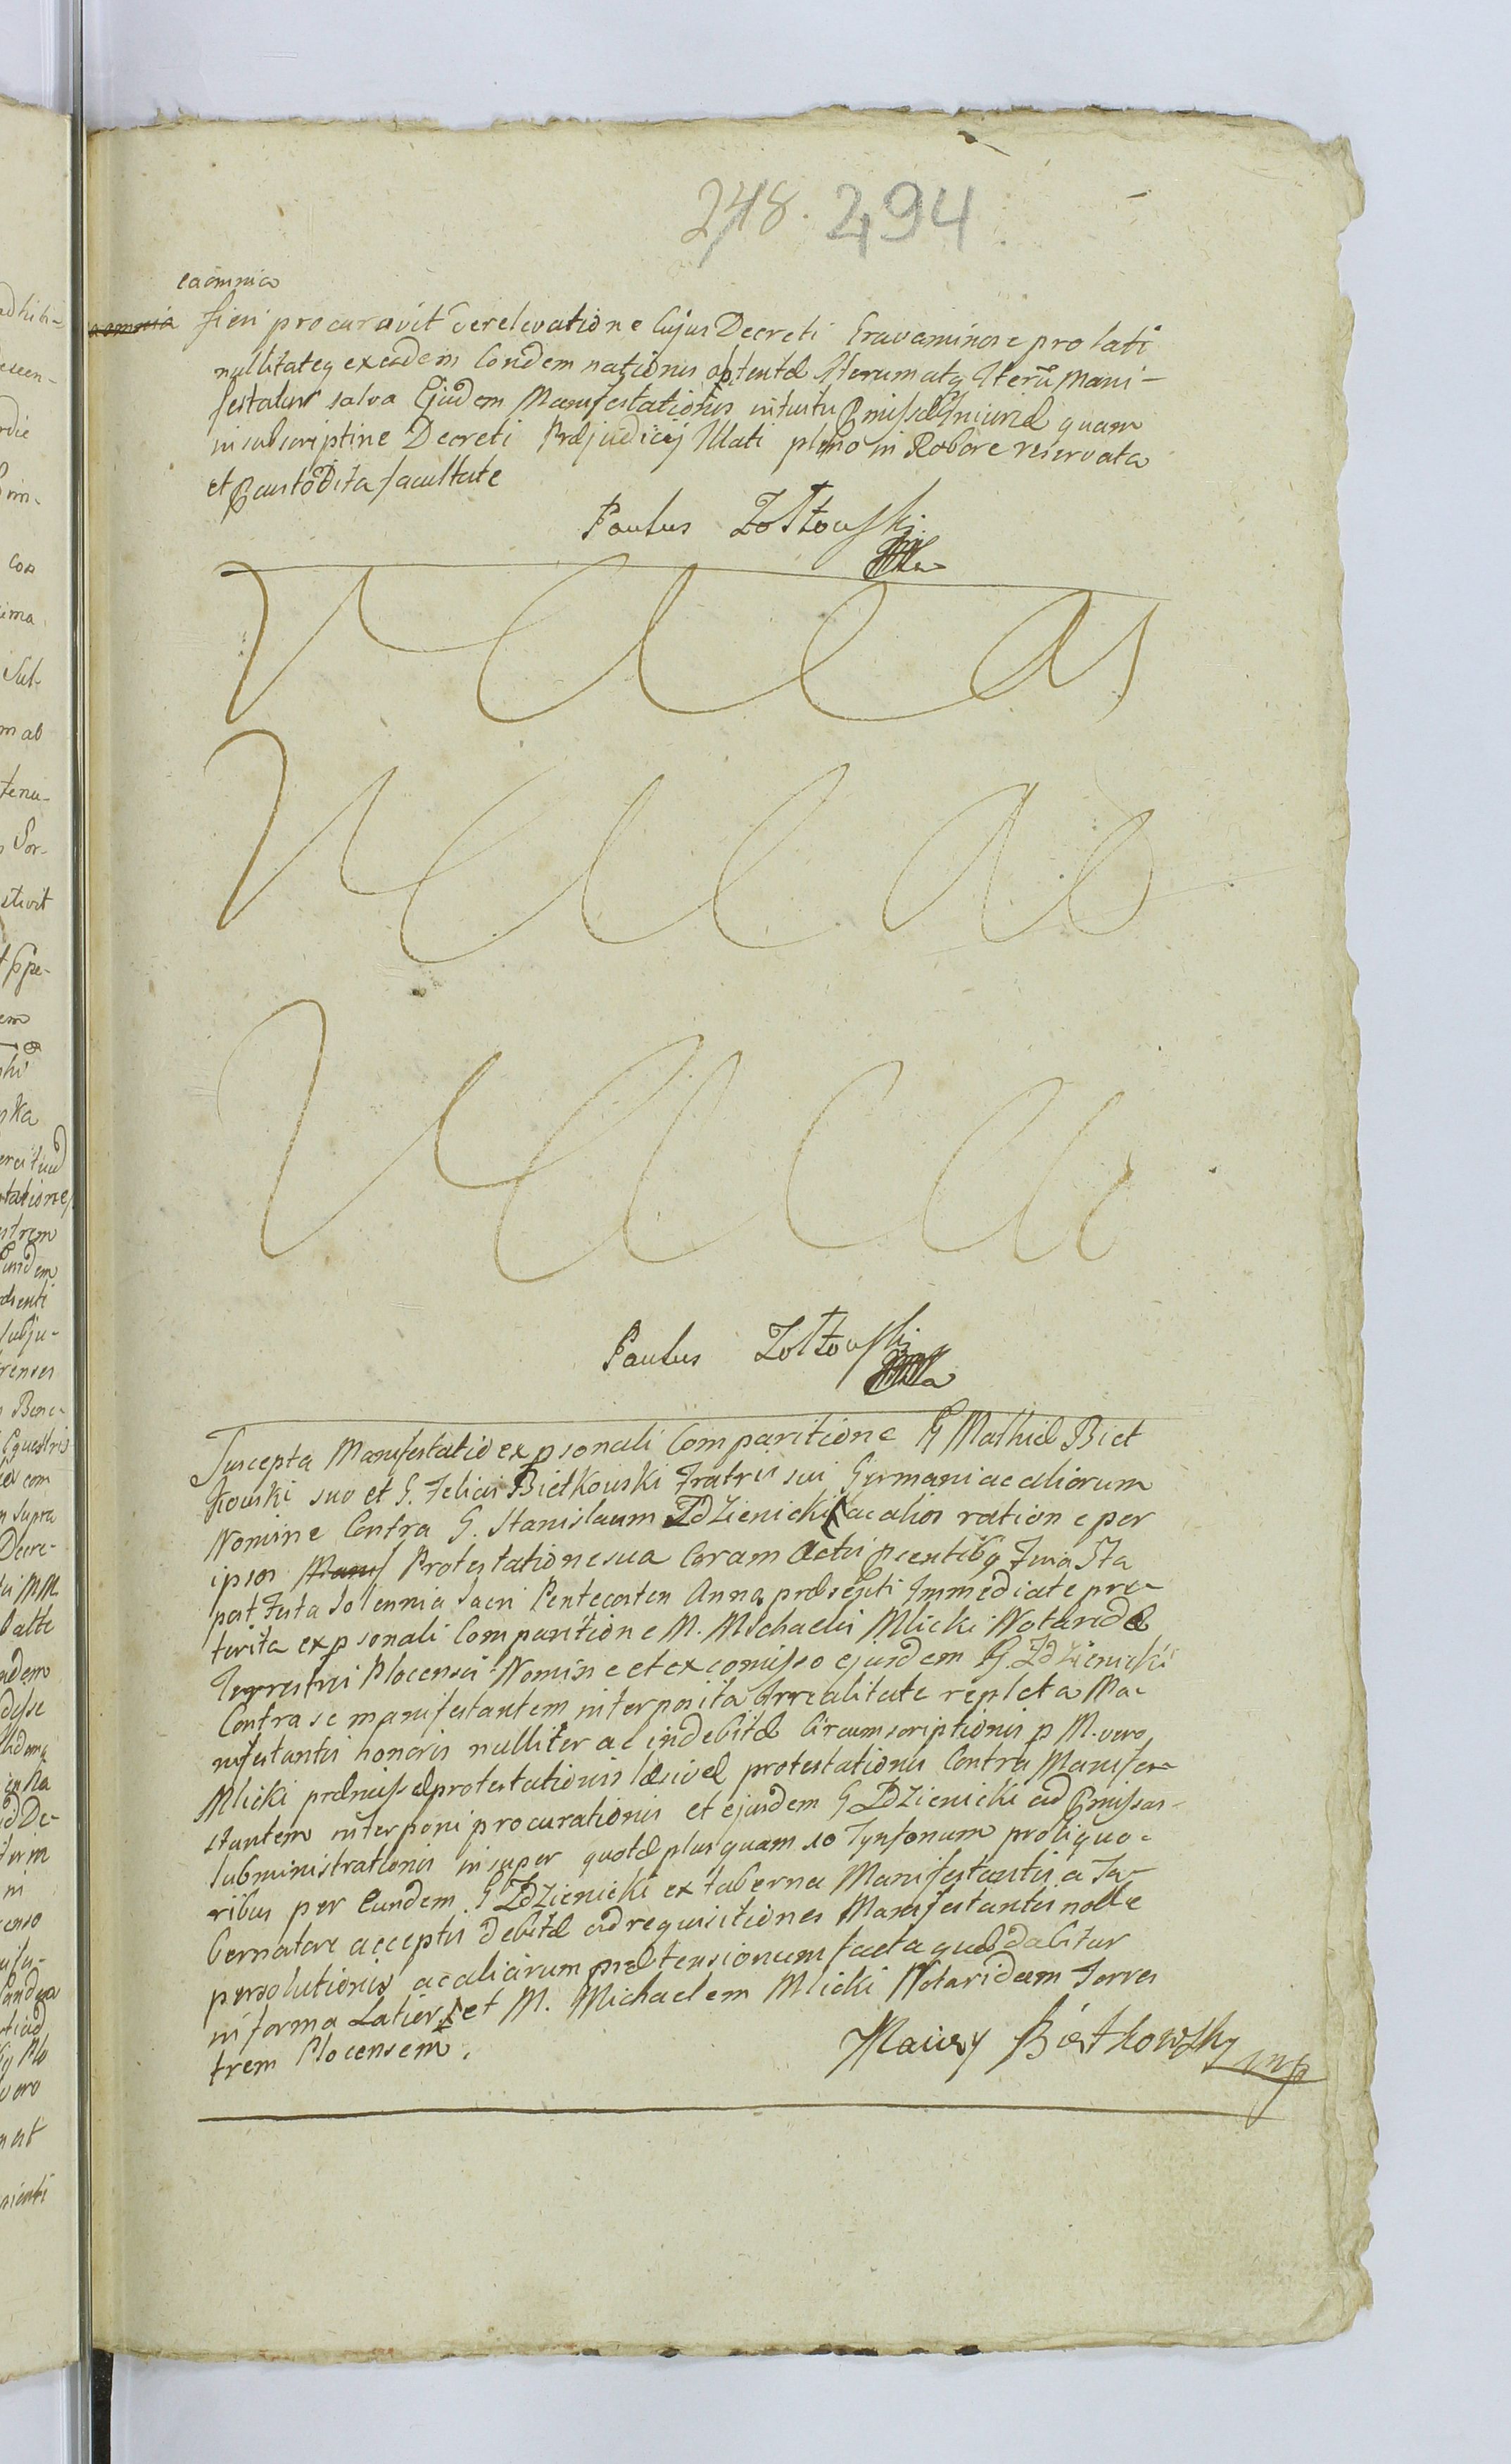 248. 294
ea omnia
fieri procuravit de relevatione Cujus Decreti Gravaminose prolati
nullitateq ex eadem Condemnationis obtentæ Iterum atq Iterũ Mani-
festatur salva Ejusdem Manifestationis intuitu Pmissæ Injuriæ quam
in subscriptine Decreti Præjudicij Illati pleno in Robore reservata
et Pcustodita facultate
Paulus Zołtowski
mp
Vacas
Vacas
Vaca
Paulus Zołtowski
mp
Suscepta Manifestatio ex psonali Comparitione G Mathiæ Biet
kowski suo et G. Felicis Bietkowski Fratris sui Germani ac aliorum
Nomine Contra G. Stanislaum Zdzienicki ac alios ratione per
ipsos Manif Protestatione sua Coram Actis psentibq Feria 5ta
post Festa Solennia Sacri Pentecosten Anno præsenti Immediate præ-
terita ex psonali Comparitione M. Michaelis Mlicki Notarii
Terrestris Plocensis Nomine et ex comisso ejusdem G. Zdzienicki
Contra se manifestantem interposita Irrealitate repleta Ma-
nifestantis honoris nulliter ac indebitæ Circumscriptionis p M. vero
Mlicki præmissæ protestationis læsivæ protestationis Contra Manifes-
stantem interponi procurationis et ejusdem G Zdzienicki ad Pmissas
Subministrationis insuper quotæ plus quam 10 Tynfonum pro liquo-
ribus per Eundem G Zdzienicki ex taberna Manifestantis a Ta-
bernatore acceptis debitæ ad requisitiones Manifestantis nolle
persolutionis ac aliarum prætensionum facta quæ dabitur
in forma Latiori et M. Michaelem Mlicki Notarium Terres
trem Plocensem.
Maciey Biétkowsky mp